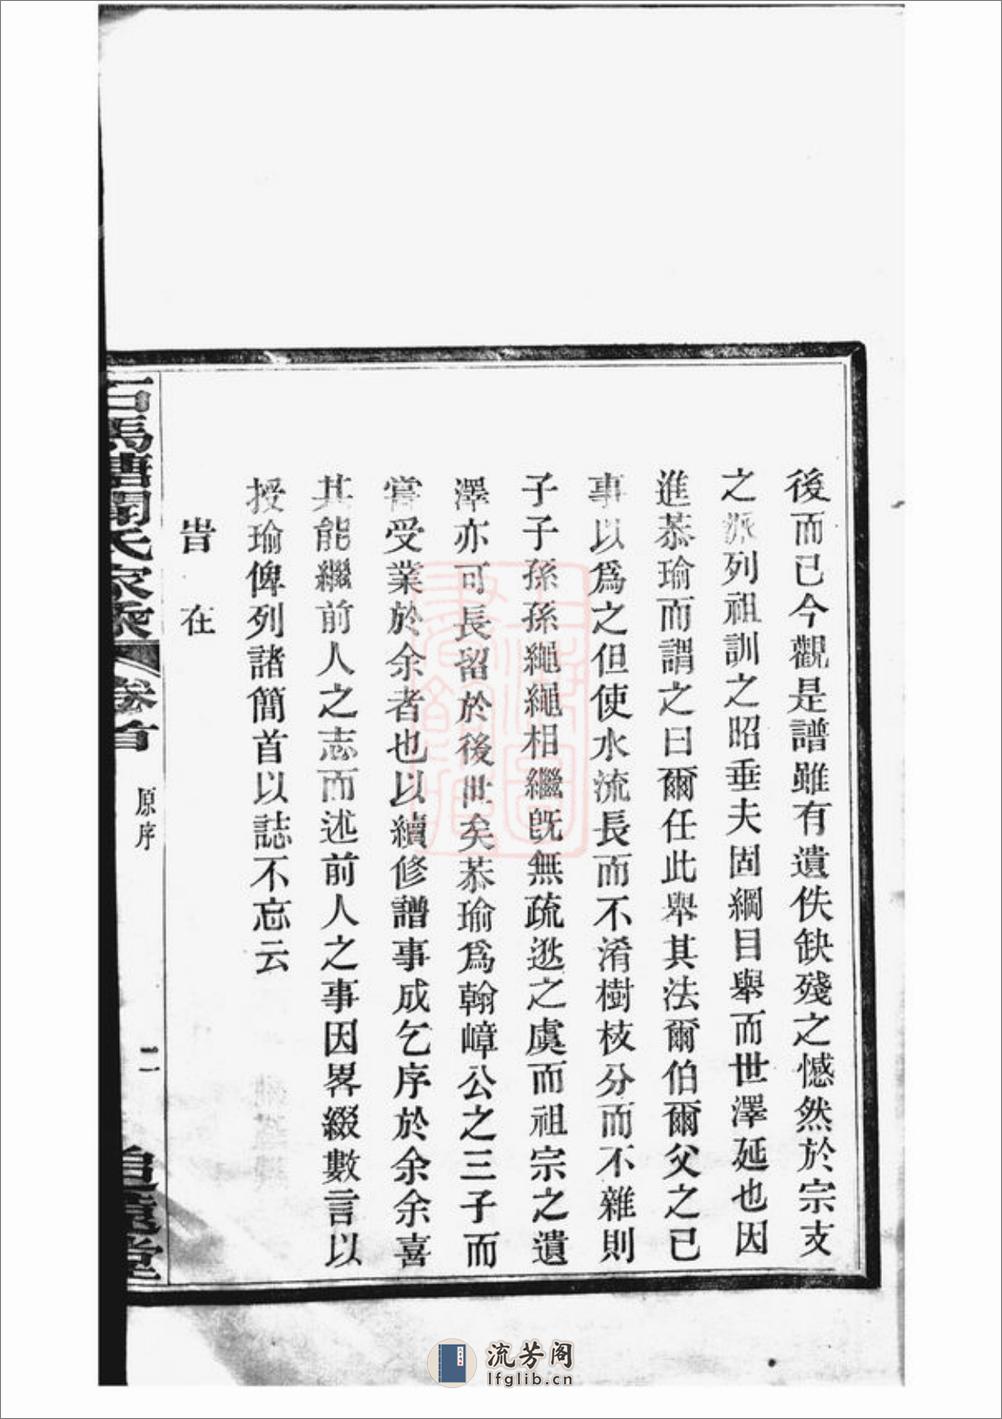 後而已今觀是譜雖有遺佚缺殘之憾然於宗支
之派列祖訓之昭垂夫固綱目舉而世澤延也因
進恭瑜而謂之曰爾任此舉其法爾伯爾父之已
事以爲之但使水流長而不淆樹枝分而不雜則
子子孫孫繩繩相繼旣無疏逖之虞而祖宗之遺
澤亦可長留於後世矣恭瑜爲翰嶂公之三子而
嘗受業於余者也以續修譜事成乞序於余余喜
其能繼前人之志而述前人之事因畧綴數言以
授瑜俾列諸簡首以誌不忘云
旹在
石馬塘聞氏家乘
卷首
原序
二
追遠堂
流芳阁
lfglib.cn